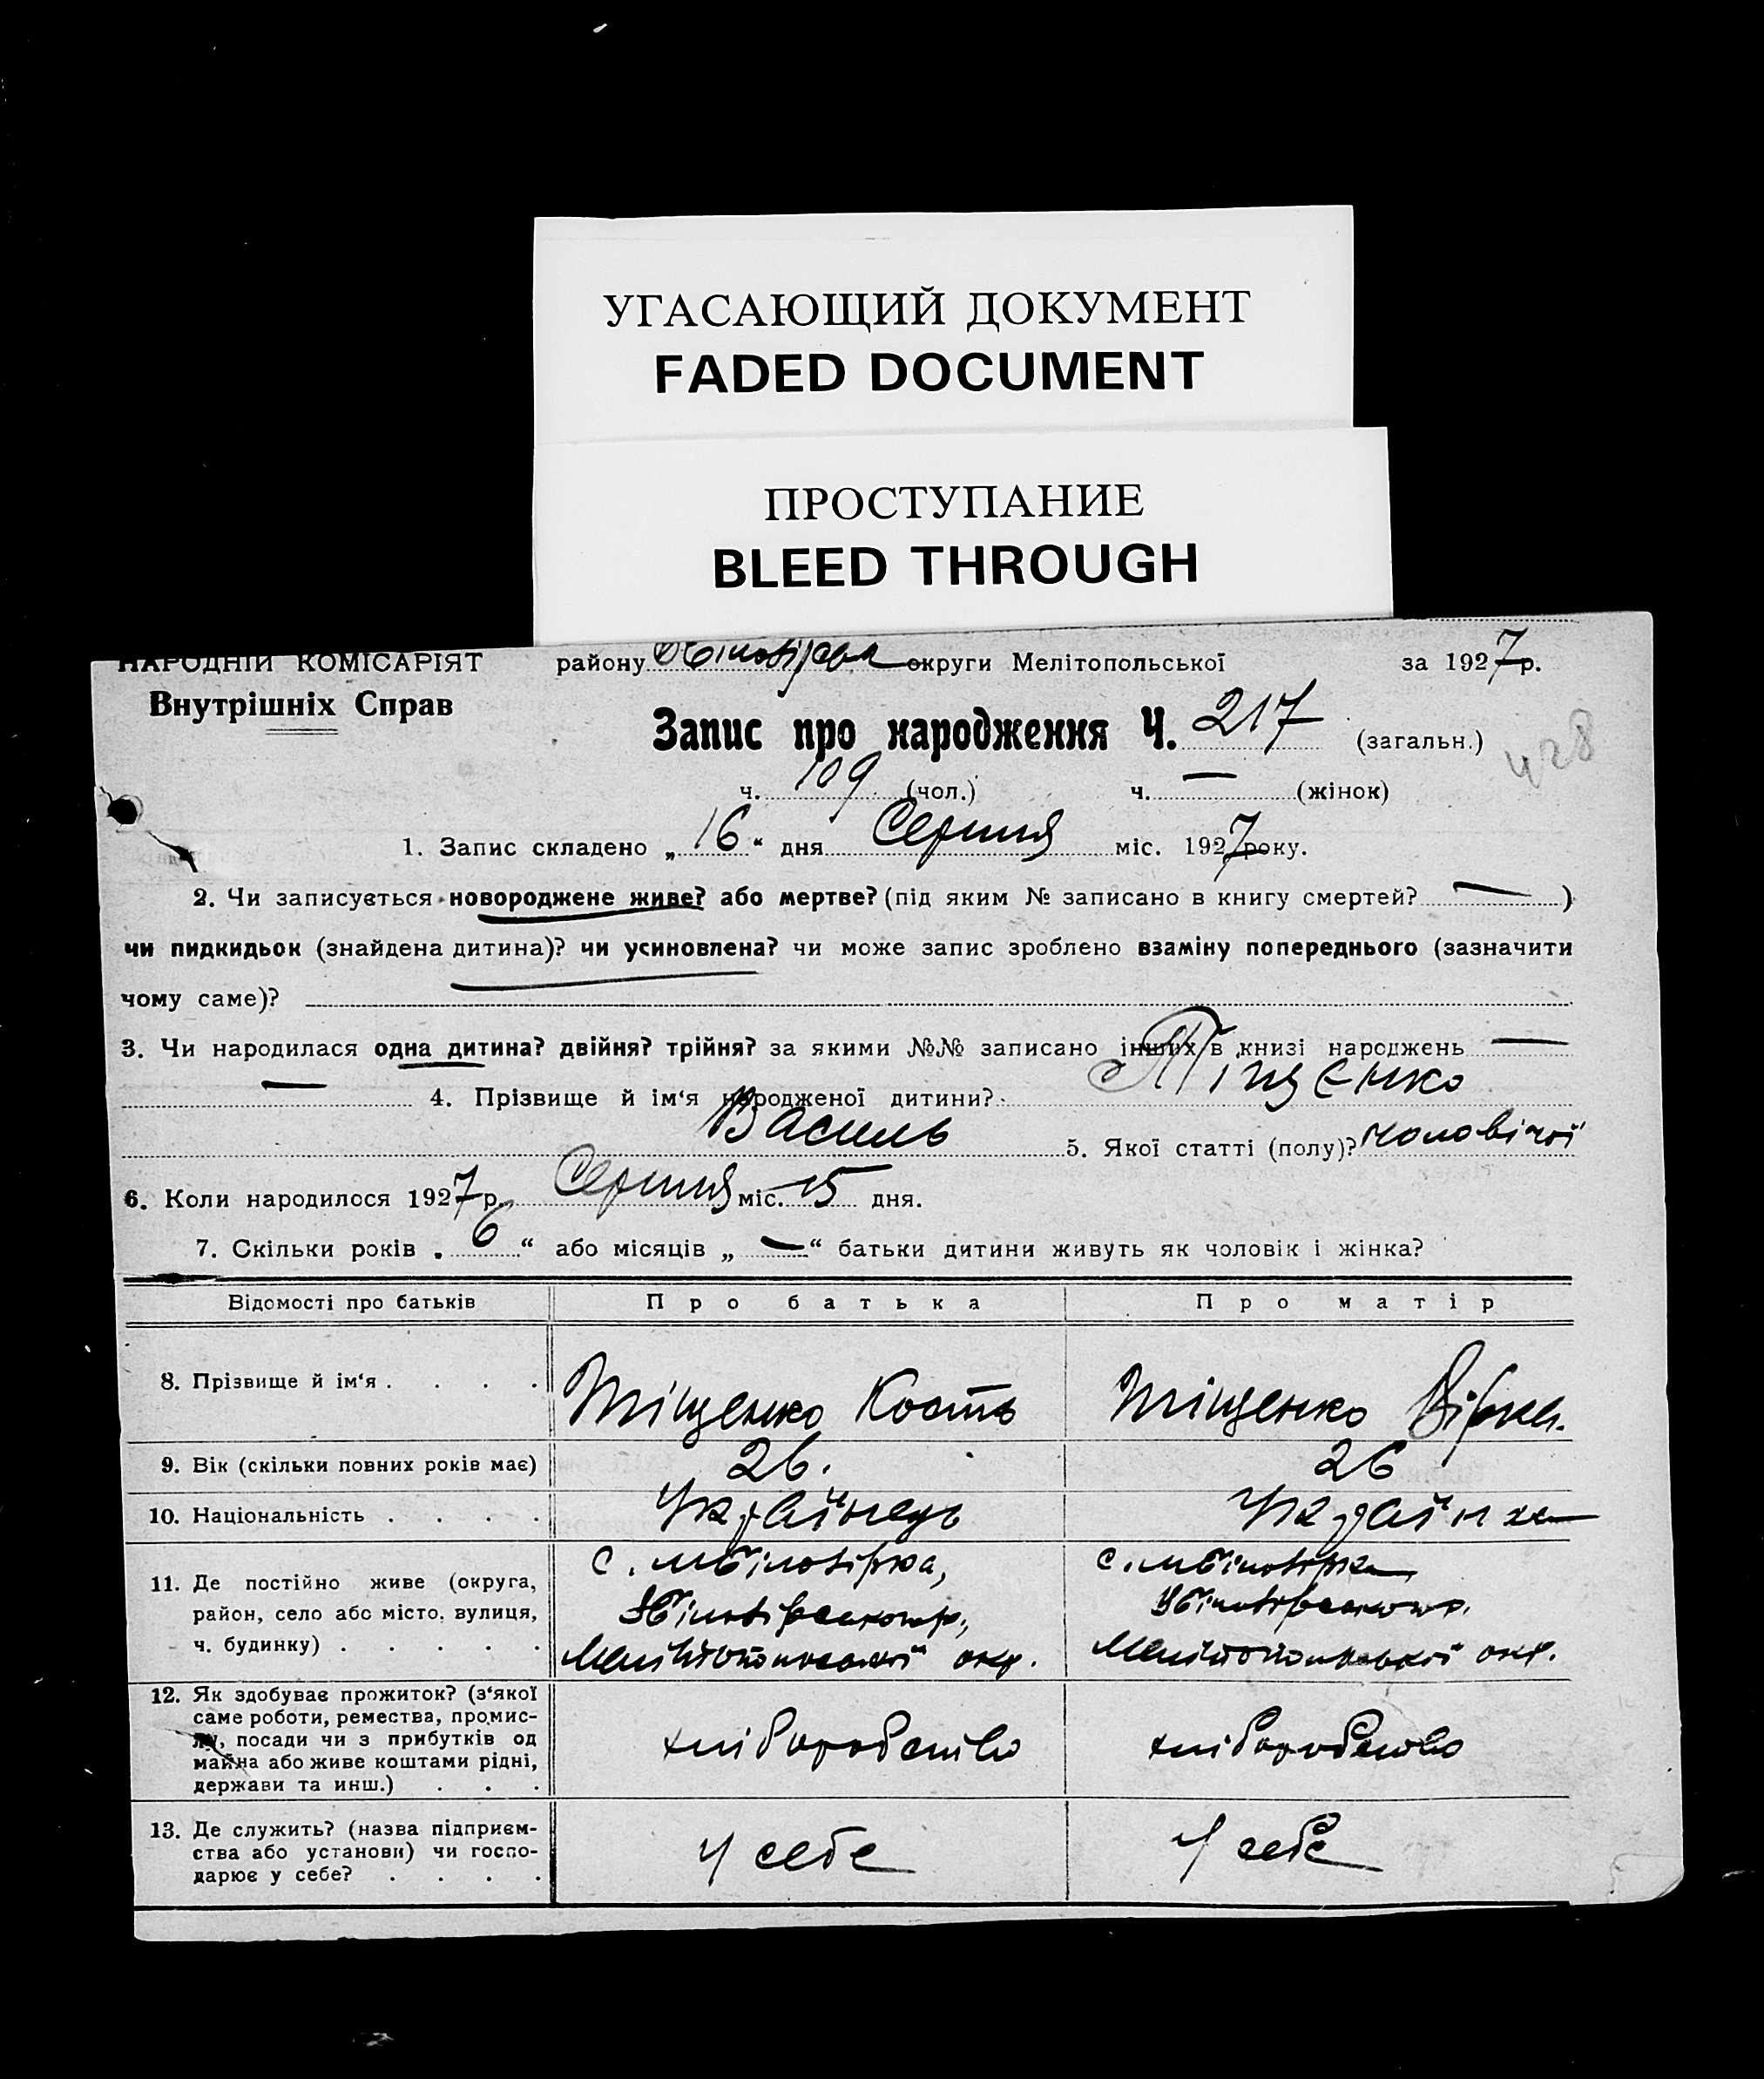 УГАСАЮЩИЙ ДОКУМЕНТ
FADED DOCUMENT
ПРОСТУПАНИЕ
BLEED THROUGH
НАРОДНІЙ КОМІСАРІЯТ району округи Мелітопольської за 1927 р.
Внутрішніх Справ
Запис про народження Ч. 217 (загальн.)
428
ч. 109 (чол.) ч. — (жінок)
1. Запис складено „ 16 “ дня Серпня міс. 1927 року.
2. Чи записується новороджене живе? або мертве? (під яким № записано в книгу смертей? — )
чи пидкидьок (знайдена дитина)? чи усиновлена? чи може запис зроблено взаміну попереднього (зазначити
чому саме)?
3. Чи народилася одна дитина? двійня? трійня? за якими №№ записано інших в книзі народжень —
— 4. Прізвище й ім‘я народженої дитини? Тіщенко
Василь 5. Якої статті (полу)? чоловічої
6. Коли народилося 1927 р. Серпня міс. 15 дня.
7. Скільки років „ 6 “ або місяців „ — “ батьки дитини живуть як чоловік і жінка?
Відомості про батьків Про батька Про матір
8. Прізвище й ім‘я . . . . Тіщенко Кость Тіщенко
9. Вік (скільки повних років має) 26. 26
10. Національність . . . . Українець Українка
11. Де постійно живе (округа, с. мБілозірка, с. мБілозірка
район, село або місто, вулиця,
ч. будинку) . . . . . Мелітопольської окр. Мелітопольської окр.
12. Як здобуває прожиток? (з‘якої
саме роботи, ремества, промис-
лу, посади чи з прибутків од
майна або живе коштами рідні, хліборобство хліборобство
держави та инш.) . . .
13. Де служить? (назва підприєм-
ства або установи) чи госпо- У себе У себе
дарює у себе? . . . .